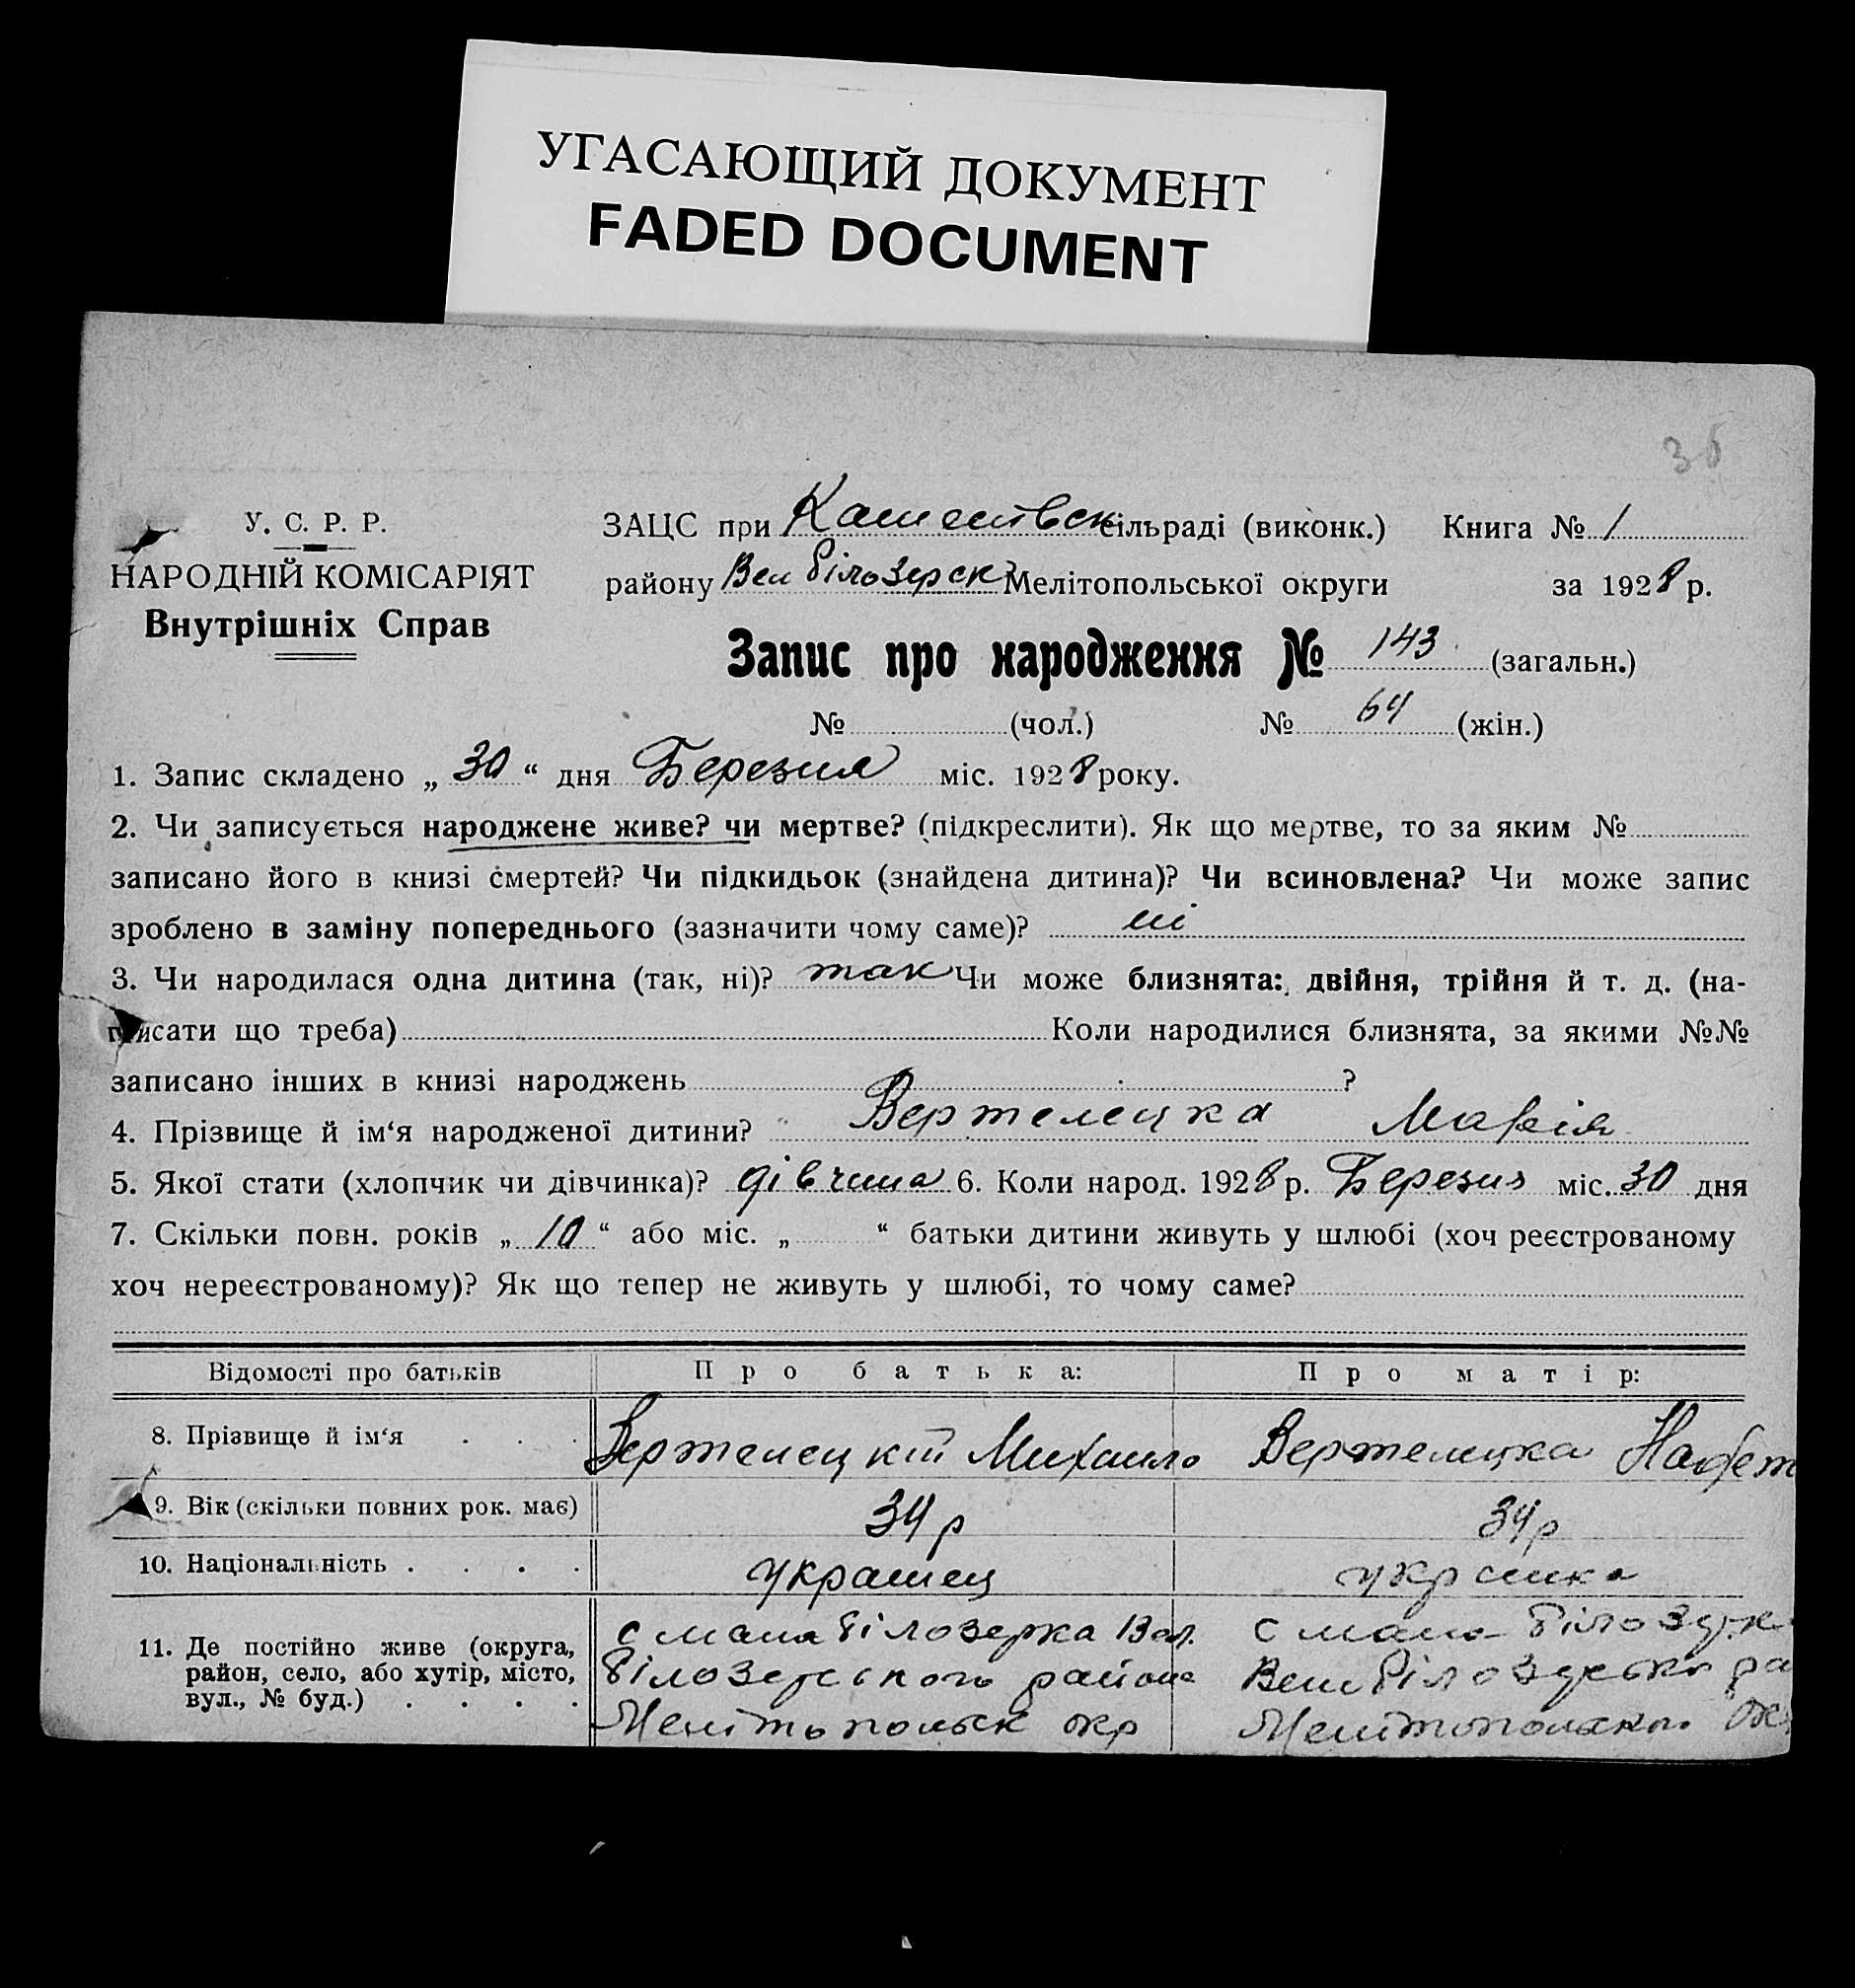 УГАСАЮЩИЙ ДОКУМЕНТ
FADED DOCUMENT
36
У. С. Р. Р.
НАРОДНІЙ КОМІСАРІЯТ
Внутрішніх Справ
ЗАЦС при сільраді (виконк.) Книга № 1
району Вел Білозерск Мелітопольської округи за 1928 р.
Запис про народження № 143 (загальн.)
№ (чол.) № 64 (жін.)
1. Запис складено „ 30 “ дня Березня міс. 1928 року.
2. Чи записується народжене живе? чи мертве? (підкреслити). Як що мертве, то за яким №
записано його в книзі смертей? Чи підкидьок (знайдена дитина)? Чи всиновлена? Чи може запис
зроблено в заміну попереднього (зазначити чому саме)? ні
3. Чи народилася одна дитина (так, ні)? так Чи може близнята: двійня, трійня й т. д. (на-
писати що треба) Коли народилися близнята, за якими №№
записано інших в книзі народжень ?
4. Прізвище й ім‘я народженої дитини? Вертелецка Марія
5. Якої стати (хлопчик чи дівчинка)? дівчина 6. Коли народ. 1928 р. Березня міс. 30 дня
7. Скільки повн. років „ 10 “ або міс. „ “ батьки дитини живуть у шлюбі (хоч реєстрованому
хоч нереєстрованому)? Як що тепер не живуть у шлюбі, то чому саме?
Відомості про батьків Про батька: Про матір:
8. Прізвище й ім‘я . . . Вертелецкій Михаило Вертелецка
9. Вік (скільки повних рок. має) 34 р 34 р
10. Національність . . . . українец українка
11. Де постійно живе (округа, район, село, або хутір, місто, вул., № буд.) . . . .
с мала Білозерка Вел.
Білозерського района
Мелітопольск окр
с мала Білозерк
Вел Білозерсько ра
Мелітопольского Ок